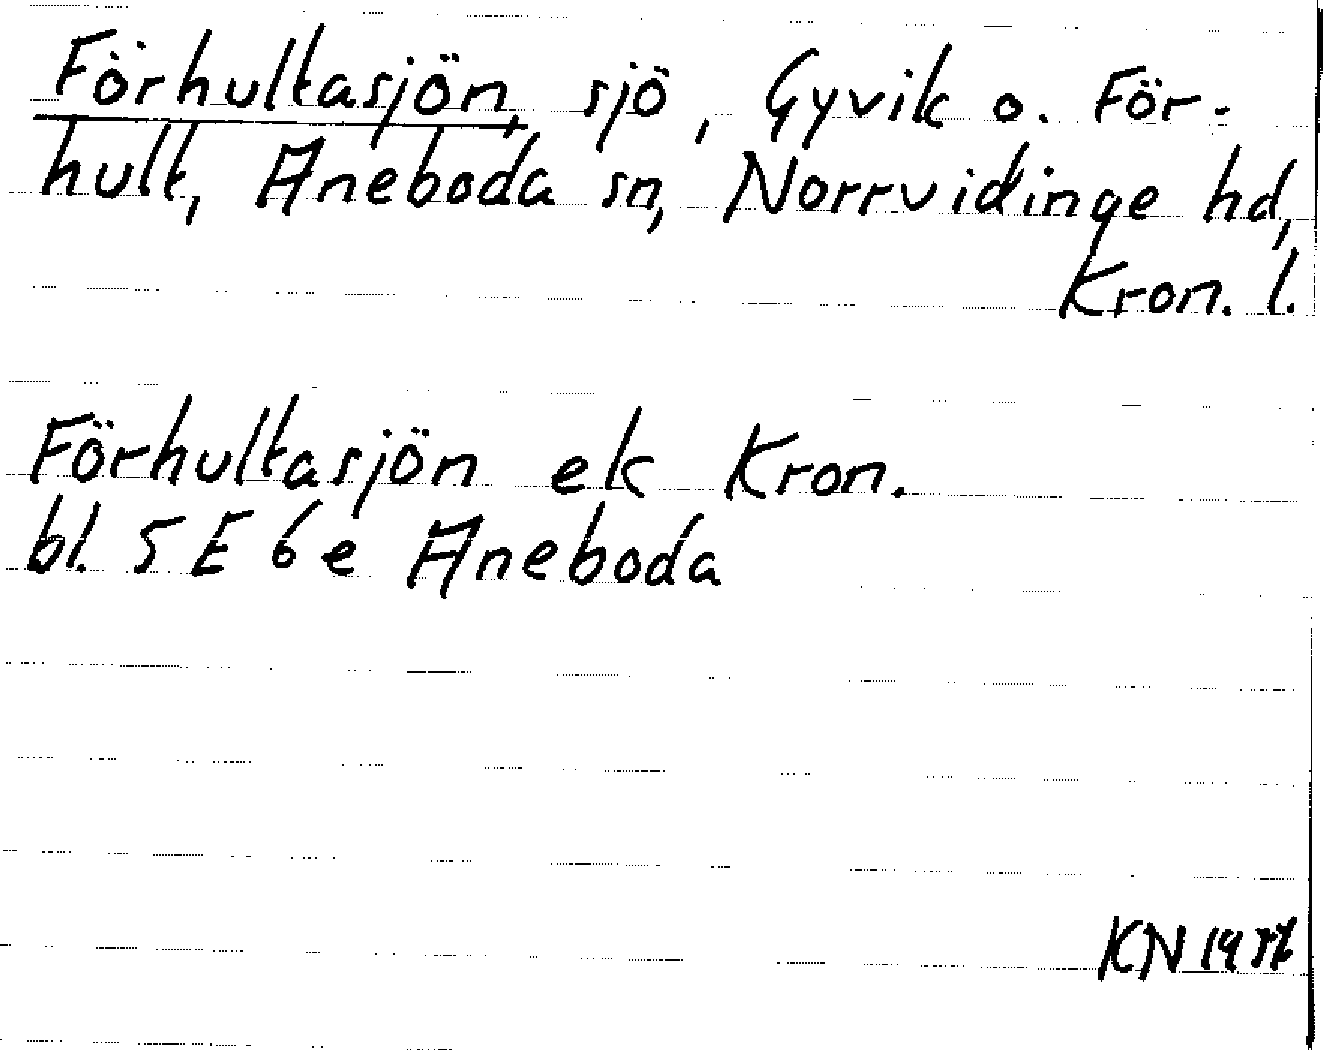 Förhultasjön, sjö, Gyvik o. För-
hult, Aneboda sn, Norrvidinge hd,
Kron. l.
Förhultasjön ek Kron.
bl. 5 E 6 e Aneboda
KN